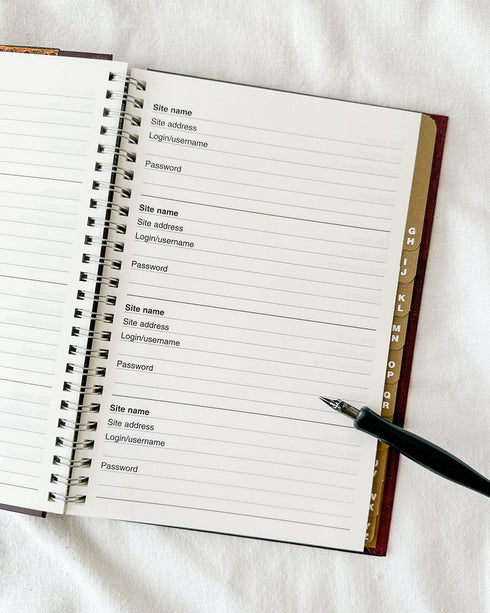 Site name
Site address
Login/username
Password
Site name
Site address
Login/username
Password
Site name
Site address
Login/username
Password
Site name
Site address
Login/username
Password
G
H
I
J
K L
M
N
O
P
Q
R